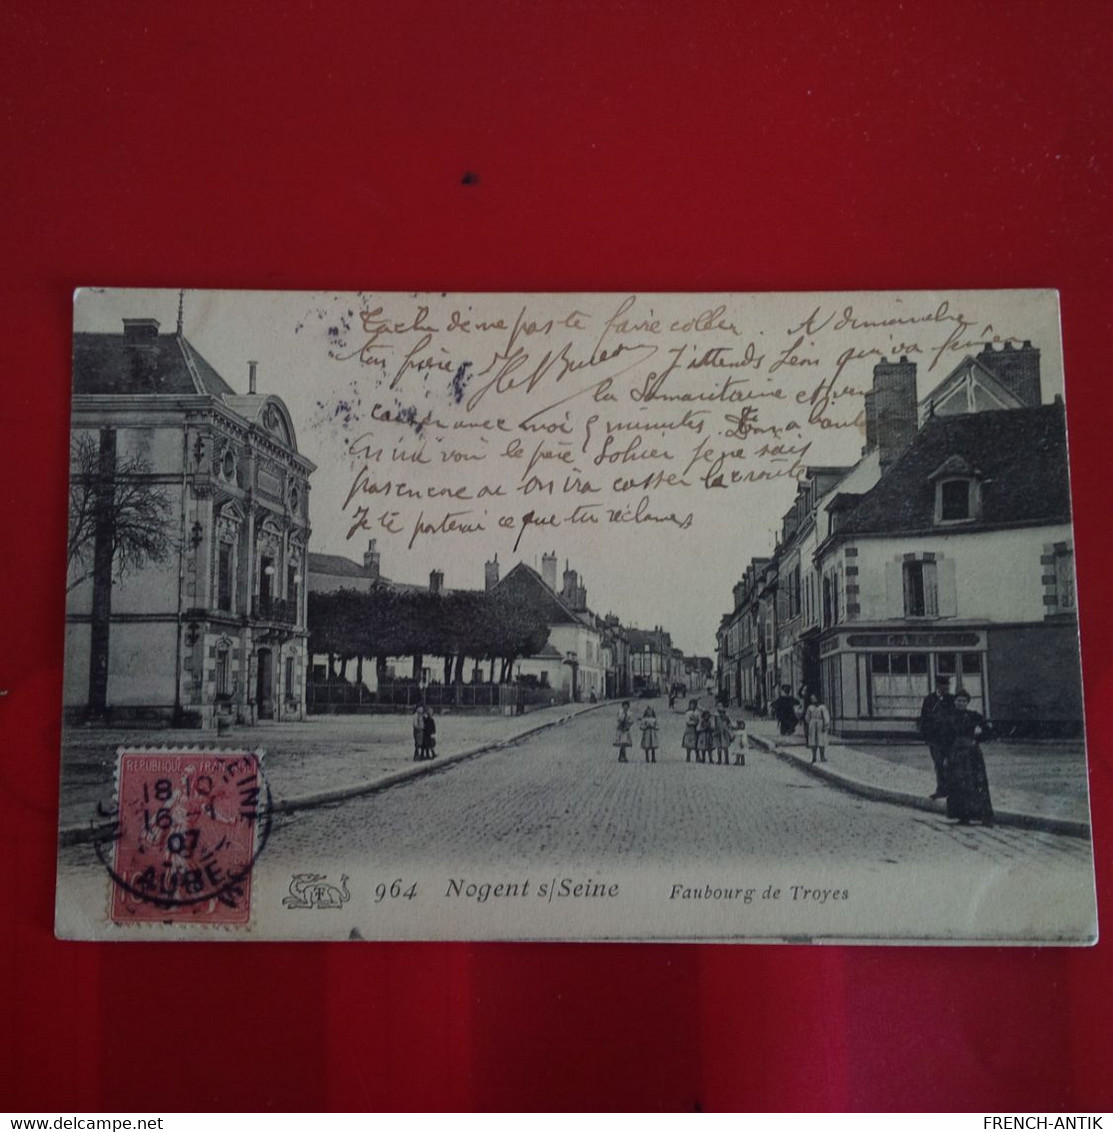 Tache de ne pas te faire coller. A dimanche
ton frère J'attends Léon qui va
la Samaritaine et
avec moi 5 minutes.
voir le père Lohier je ne sais
pas encore on ira casser la croûte
Je te porterai ce que tu réclames
REPUBLIQUE FRANÇAISE
18 10
16 - 1
07
AUBE
CAFÉ
964 Nogent s/Seine Faubourg de Troyes
FRENCH-ANTIK